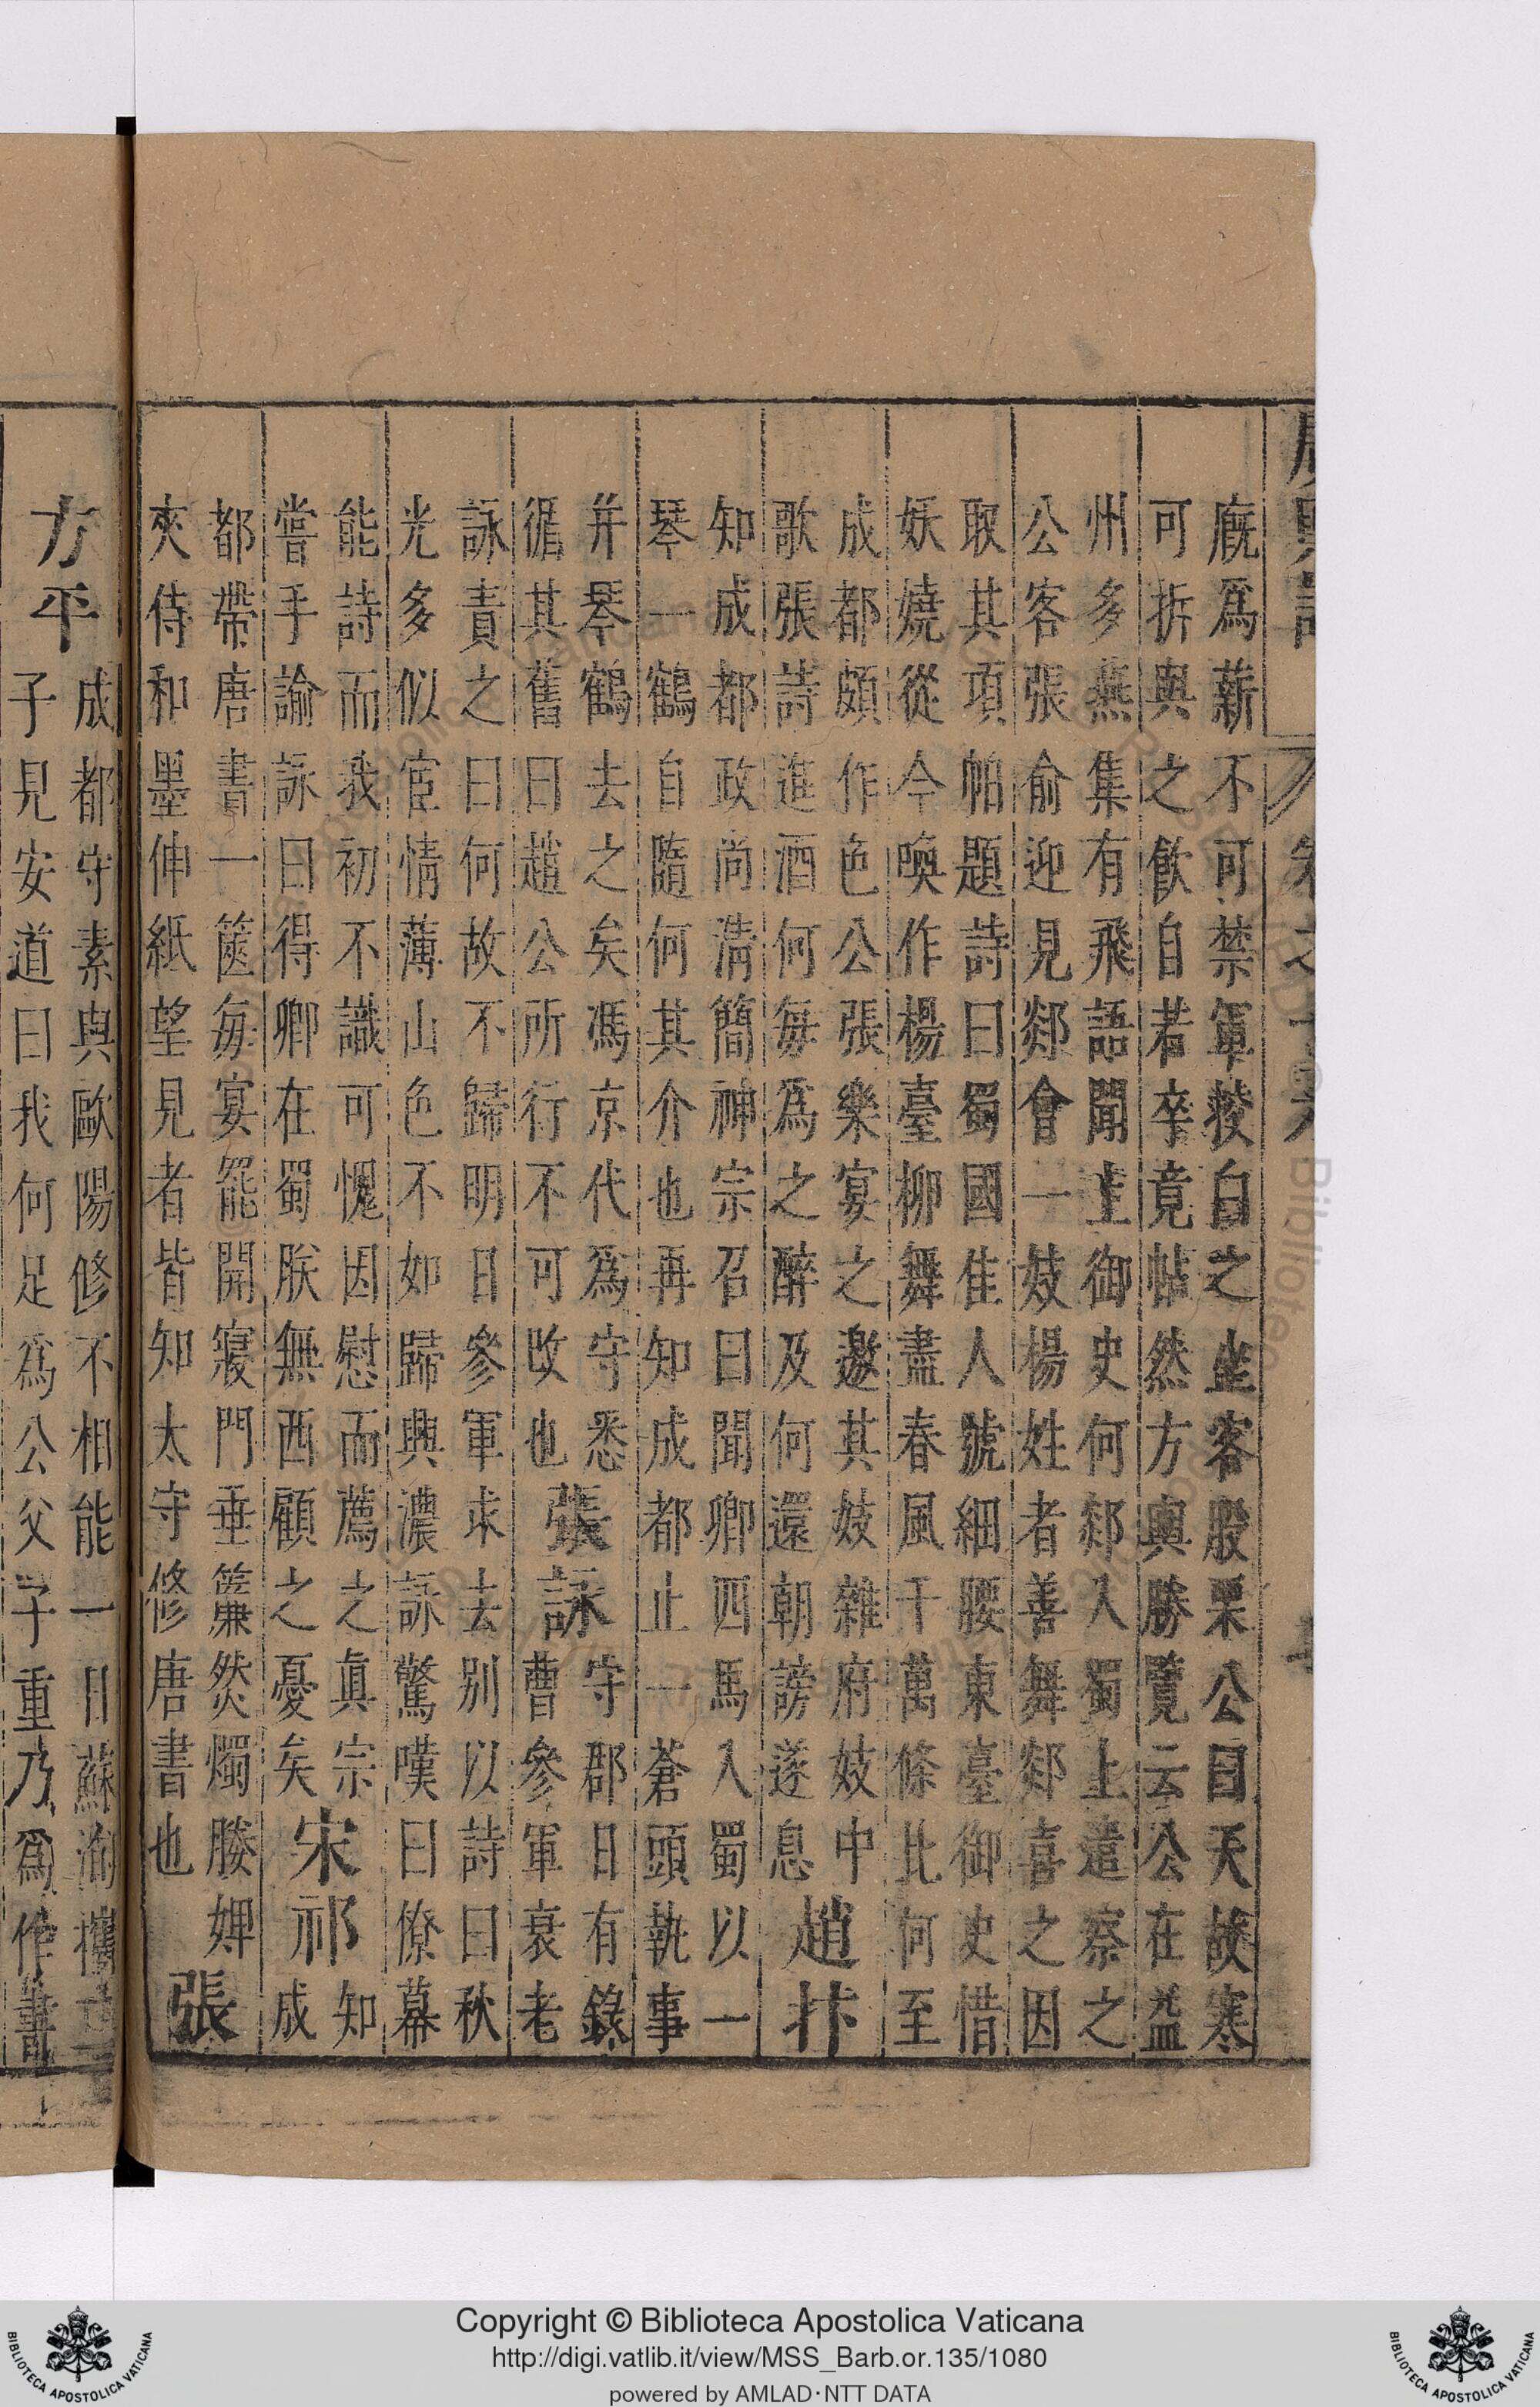 廐爲薪不可禁軍校白之坐客股栗公曰天故寒
可拆與之飲自若卒竟帖然方輿勝覽云公在益
州多燕集有飛語聞上御史何郯入蜀上遣察之
公客張俞迎見郯會一妓楊姓者善舞郯喜之因
取其項帕題詩曰蜀國佳人號細腰東臺御史惜
妖嬈從今喚作楊臺柳舞盡春風千萬條比何至
成都頗作色公張樂宴之邀其妓雜府妓中
歌張詩進酒何每爲之醉及何還朝謗遂息
趙抃
知成都政尚清簡神宗召曰聞卿匹馬入蜀以一
琴一鶴自隨何其介也再知成都止一蒼頭執事
并琴鶴去之矣馮京代爲守悉
循其舊曰趙公所行不可改也
張詠
守郡日有錄
曹參軍衰老
詠責之曰何故不歸明日參軍求去别以詩曰秋
光多似宦情薄山色不如歸興濃詠驚嘆曰僚幕
能詩而我初不識可愧因慰而薦之真宗
嘗手諭詠曰得卿在蜀朕無西顧之憂矣
宋祁
知
成
都帶唐書一篋每宴罷開寢門垂簾燃燭媵婢
夾侍和墨伸紙望見者皆知太守修唐書也
張
方平
成都守素與歐陽修不相能一日蘇洵攜二
子見安道曰我何足爲公父子重乃爲作書
Copyright © Biblioteca Apostolica Vaticana
http://digi.vatlib.it/view/MSS_Barb.or.135/1080
powered by AMLAD·NTT DATA
BIBLIOTECA APOSTOLICA VATICANA
BIBLIOTECA APOSTOLICA VATICANA